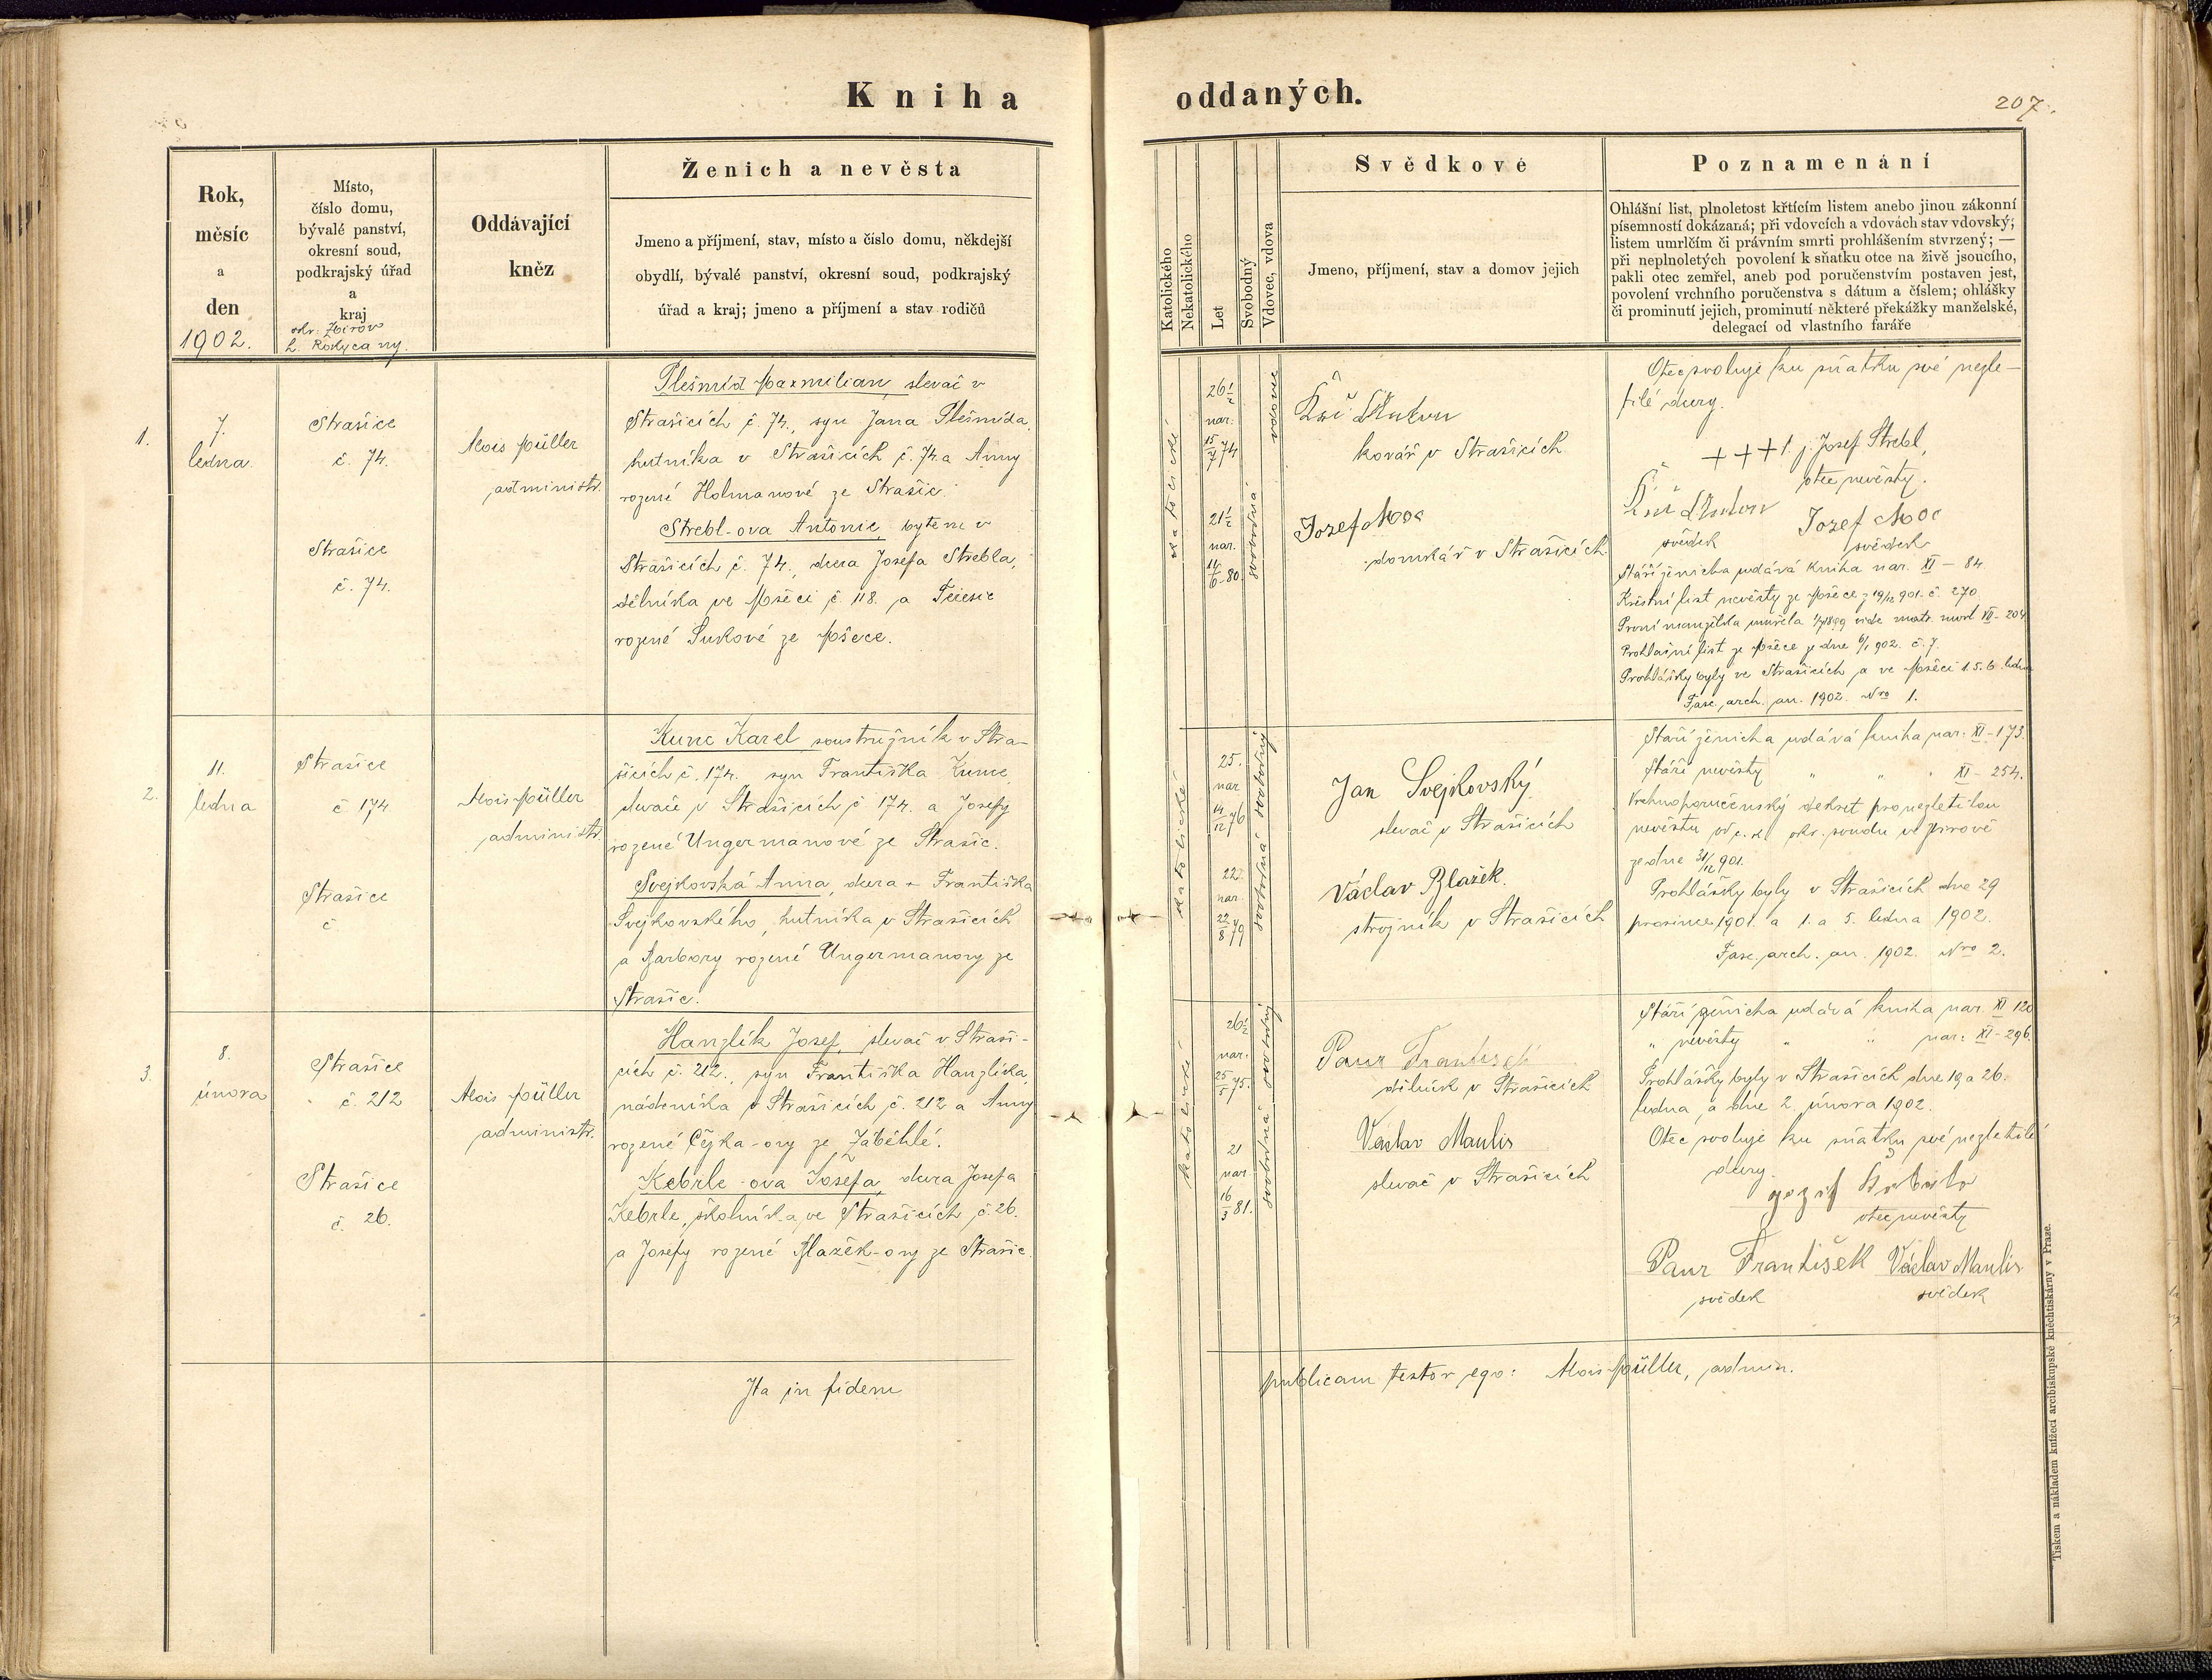 Kniha oddaných.
207.
Rok,
měsíc
a
den
1902.
Místo,
číslo domu,
bývalé panství,
okresní soud,
podkrajský úřad
a
kraj
okr. Zbirov
h. Rokycany.
Oddávající
kněz
Ženich a nevěsta
Jmeno a příjmení, stav, místo a číslo domu, někdejší
obydlí, bývalé panství, okresní soud, podkrajský
úřad a kraj; jmeno a příjmení a stav rodičů
Katolického
Nekatolického
Let
Svobodný
Vdovec, vdova
Svědkové
Jmeno, příjmení, stav a domov jejich
Poznamenání
Ohlášní list, plnoletost křtícím listem anebo jinou zákonní
písemností dokázaná; při vdovcích a vdovách stav vdovský;
listem umrlčím či právním smrti prohlášením stvrzený; —
při neplnoletých povolení k sňatku otce na živě jsoucího,
pakli otec zemřel, aneb pod poručenstvím postaven jest,
povolení vrchního poručenstva s dátum a číslem; ohlášky
či prominutí jejich, prominutí některé překážky manželské,
delegací od vlastního faráře
1.
7.
ledna.
Strašice
č. 74.
Strašice
č. 74.
Alois Müller
administr.
Plešmíd Maxmilian, slevač v
Strašicích č. 74., syn Jana Plešmída,
hutníka v Strašicích č. 74. a Anny
rozené Holmanové ze Strašic.
Strebl-ova Antonie, bytem v
Strašicích č. 74., dcera Josefa Strebla,
dělníka ve Mšeci č. 118. a Terezie
rozené Sukové ze Mšece.
katolické
26½
nar.
15/7 74
21½
nar.
14/6 80.
vdovec
svobodná
Kříž Anton
kovář v Strašicích
Jozef Moc
domkář v Strašicích.
Otec svoluje ku sňatku své nezle-
tilé dcery.
+ + + t. j. Josef Strebl,
otec nevěsty.
Kříž Anton Jozef Moc
svědek svědek
Stáří ženicha udává kniha nar. XI - 84.
Křestní list nevěsty ze Mšece z 19/12 901. č. 270
První manželka umřela 1899 vide matr. mrl XII - 204
Prohlašní list ze Mšece ze dne 6/1 902. č. 7.
Prohlášky byly ve Strašicích a ve Mšeci 1. 5. 6. ledna
Fasc. arch. an. 1902. Nro 1.
2.
11.
ledna
Strašice
č 174
Strašice
č
Alois Müller
administr.
Kunc Karel soustružník v Stra-
šicích č. 174. syn Františka Kunce,
slevače v Strašicích č 174. a Josefy
rozené Ungermanové ze Strašic.
Svejkovská Anna, dcera + Františka
Svejkovského, hutníka v Strašicích
a Barbory rozené Ungermanovy ze
Strašic.
katolické
25.
nar
14/12 76
22.
nar.
22/8 79
svobodný
svobodná
Jan Svejkovský
slevač v Strašicích
Václav Blažek.
strojník v Strašicích
Staří ženicha udává kniha nar: XI - 173.
Stáří nevěsty " " " XI - 254.
Vrchnoporučenský dekret pro nezletilou
nevěstu od c. k. okr. soudu ve Zbirově
ze dne 31/12 901.
Prohlášky byly v Strašicích dne 29
prosince 1901. a 1. a 5. ledna 1902.
Fasc. arch. an. 1902. Nro 2.
3.
8.
února
Strašice
č. 212
Strašice
č. 26.
Alois Müller
administr.
Hanzlík Josef, slevač v Straši-
cích č. 212., syn Františka Hanzlíka,
nádeníka v Strašicích č. 212 a Anny
rozené Čejka-ovy ze Záběhlé.
Kebrle-ova Josefa, dcera Josefa
Kebrle, školníka, ve Strašicích č. 26.
a Josefy rozené Blažek-ovy ze Strašic.
katolické
26½
nar.
25/5 75.
21
nar
16/3 81.
svobodný
svobodná
Paur František
dělník v Strašicích
Václav Maulis
slevač v Strašicích
Stáří ženicha udává kniha nar. XI 120
" nevěsty " " nar: XI - 296.
Prohlášky byly v Strašicích dne 19 a 26.
ledna, a dne 2. února 1902.
Otec svoluje ku sňatku své nezletilé
dcery.
otec nevěsty
Paur František Václav Maulis
svědek svědek
Ita in fidem publicam testor ego: Alois Müller, admin.
Tiskem a nákladem knížecí arcibiskupské kněhtiskárny v Praze.